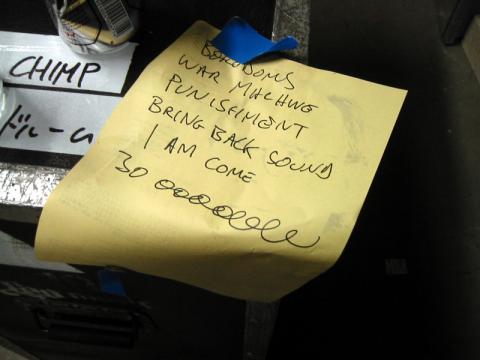 CHIMP
ドルーム
BORODOMS
WAR MACHINE
PUNISHMENT
BRING BACK SOUND
I AM COME
30